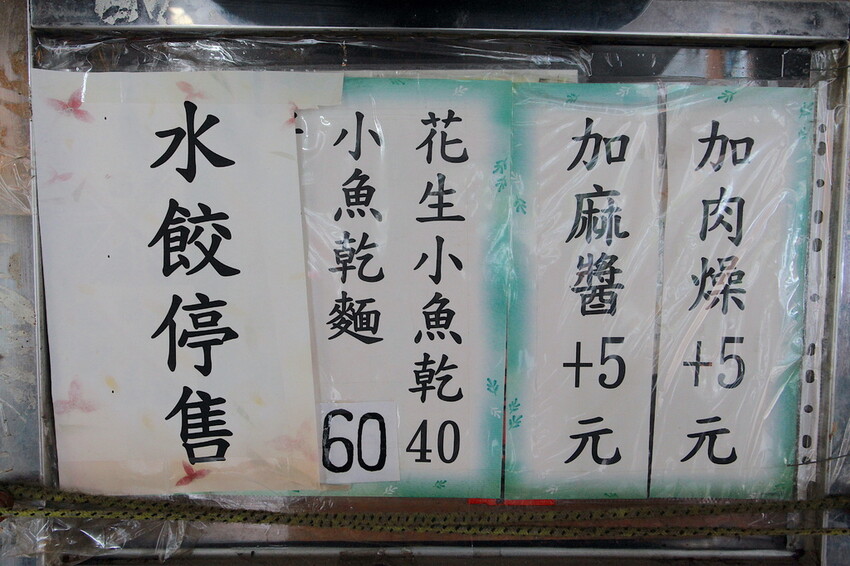 加肉燥+5元
加麻醬+5元
花生小魚乾40
小魚乾麵60
水餃停售